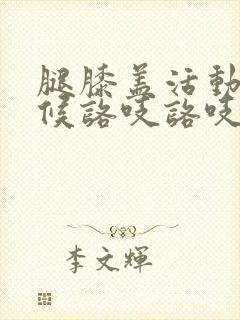 腿膝盖活動
候詻吱詻吱
李文輝